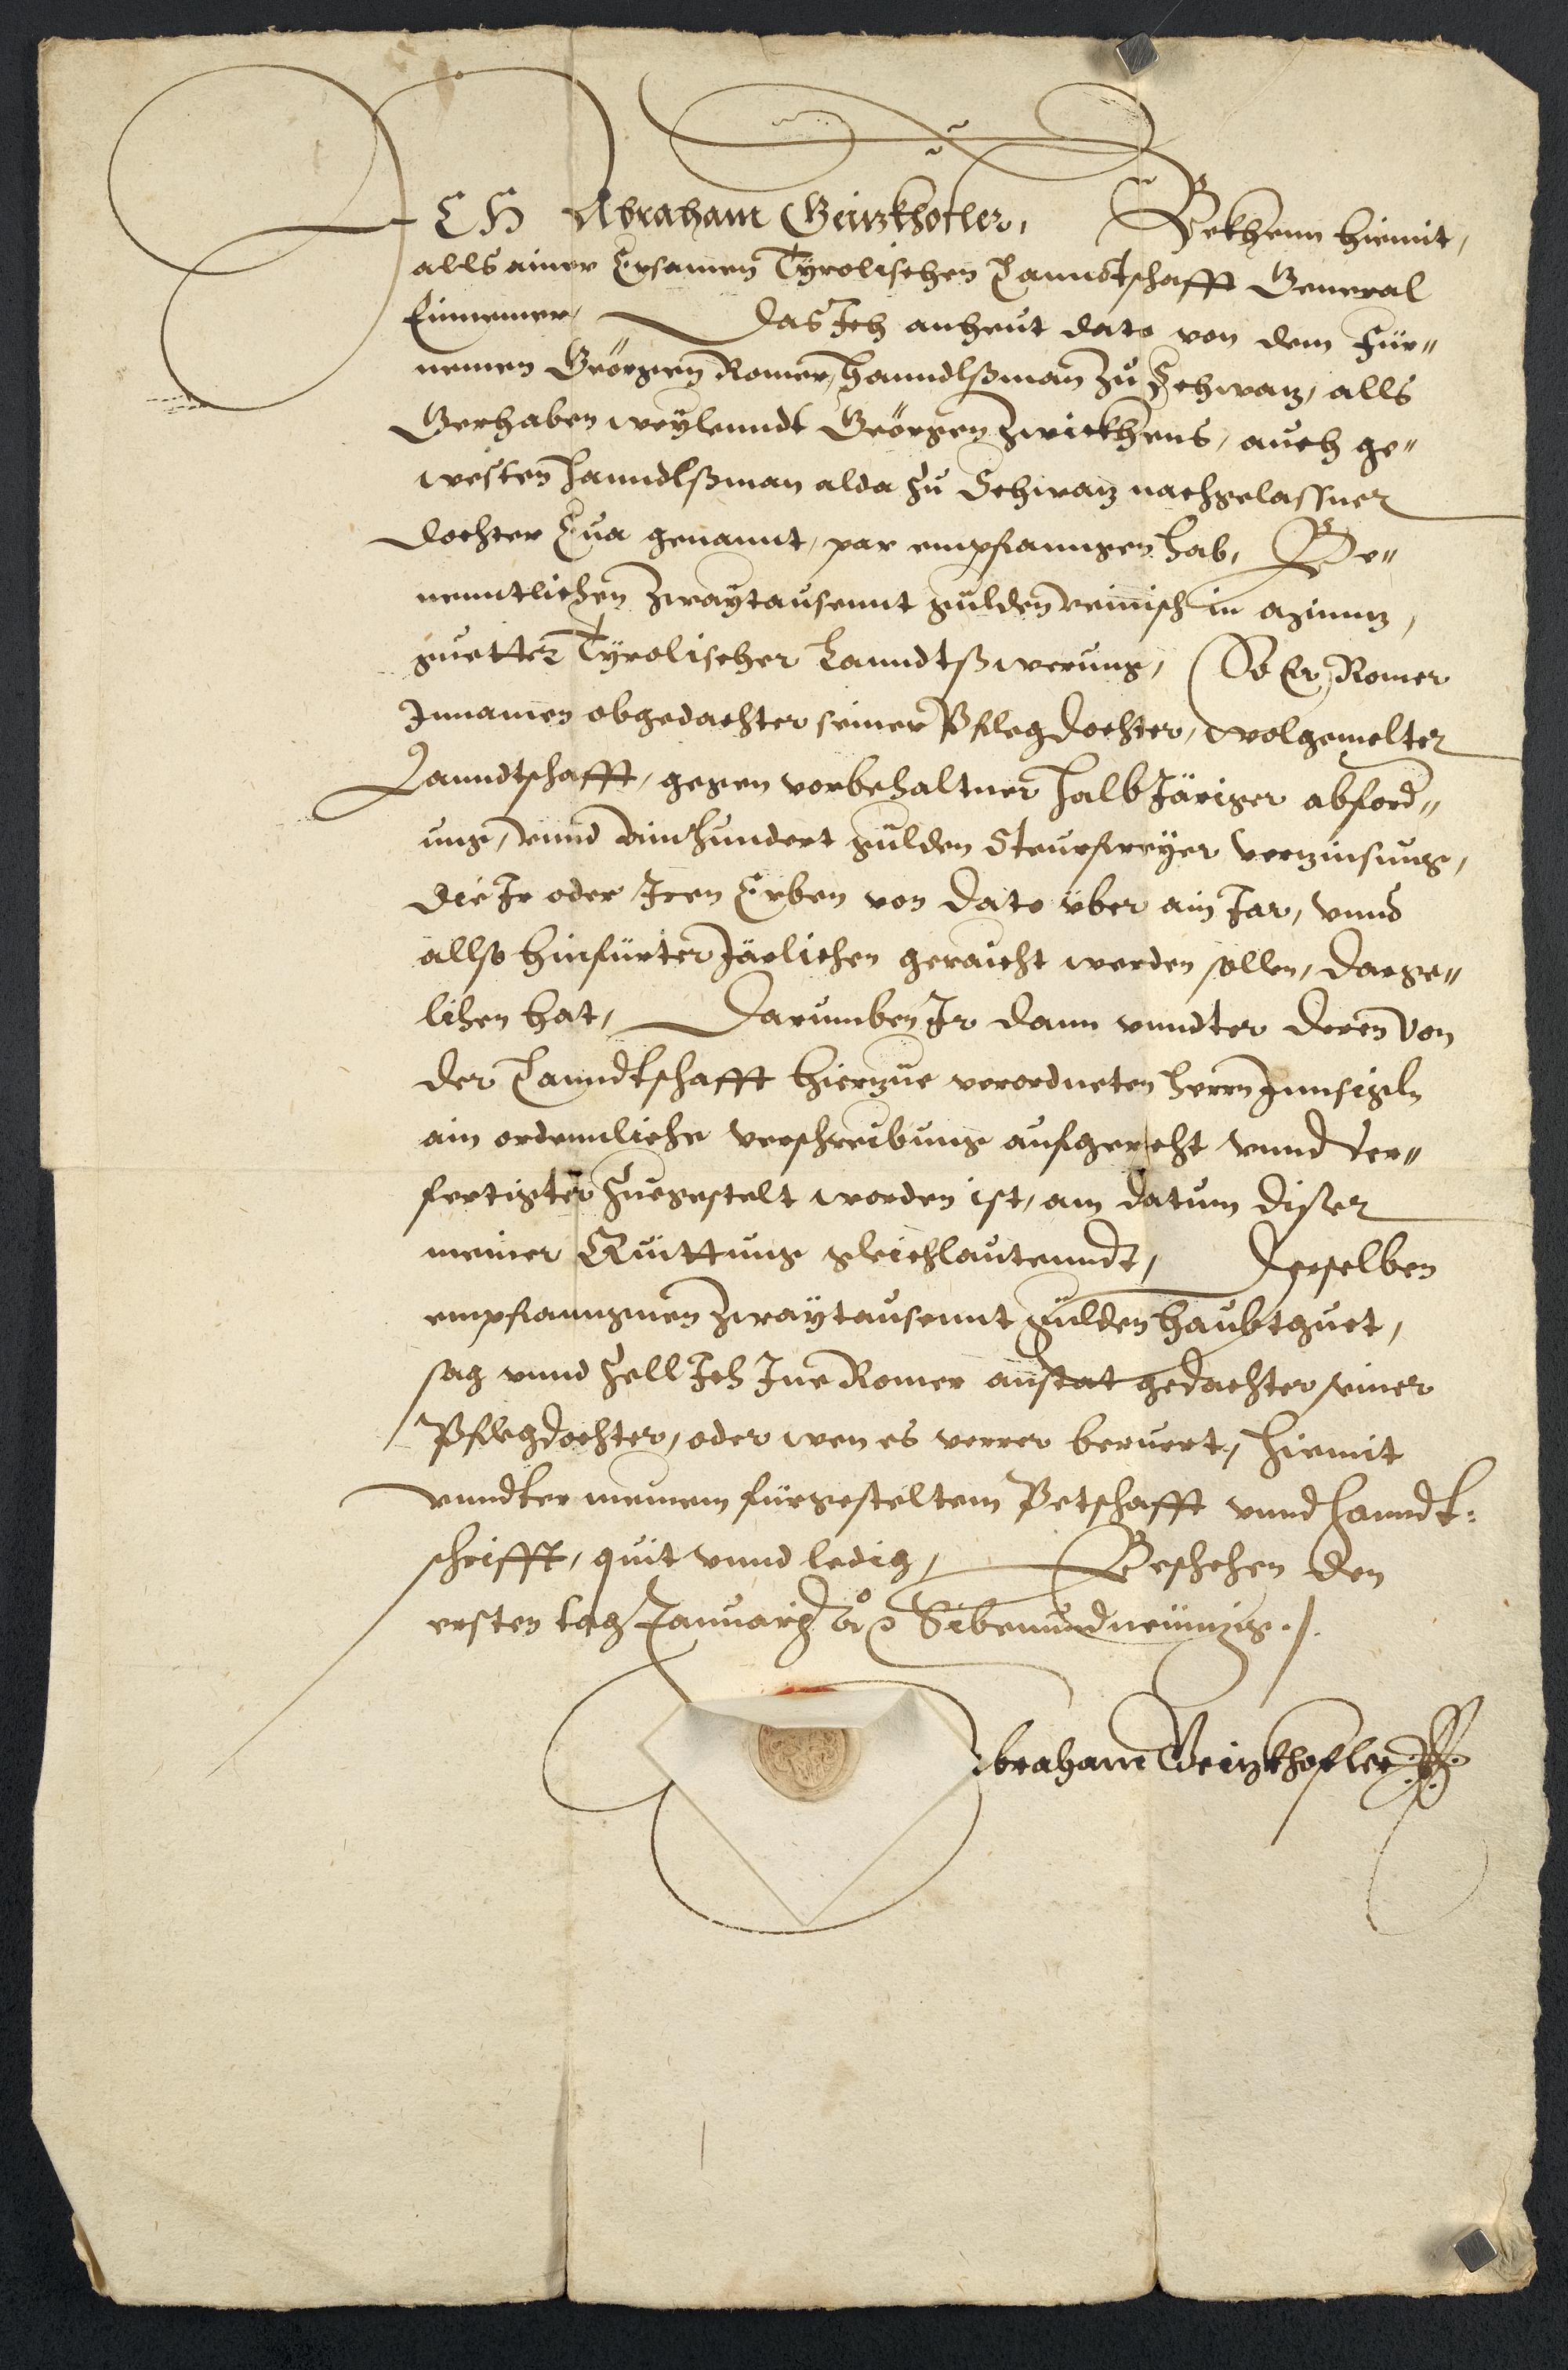 ICH Abraham Geitzkhofler, Bekhenn hiemit,
alls ainer Ersamen Tyrolischen Lanndtschafft General
Einnemer, Das Ich anheut dato von dem Für„
nemen Geörgen Romer, Hanndlßman zu Schwatz, alls
Gerhaben weylenndt Geörgen Zwickhens, auch ge„
westen Hanndlßman alda zu Schwatz nachgelassner
dochter Eua genannt, par empfanngen hab, Be„
nenntlichen Zwaytausennt gulden reinisch in
guetter Tyrolischer Lanndtßwerung, So Er, Romer
Innamen obgedachter seiner Pflegdochter, wolgemelter
Lanndtschafft, gegen vorbehaltner halb Järiger abford„
ung, vnnd ainhundert gulden Steurfreyer verzinsung,
die Ir oder Iren Erben von dato über ain Jar, vnnd
allso hinfürter Järlichen geraicht werden sollen, darge„
lihen hat, Darumben Ir dann vnndter deren von
der Lanndtschafft hierzue verordneten herrn Innsigeln
ain ordennliche verschreibung aufgericht vnnd ver„
fertigter Zuegestelt worden ist, am datum diser
meiner Quittung gleichlautenndt, Derselben
empfanngnen Zwaytausennt gulden haubtguet,
sag vnnd Zell Ich Ine Romer anstat gedachter seiner
Pflegdochter, oder wen es verrer beruert, hiemit
vnndter meinem fürgesteltem Petschafft vnnd Hanndt:
schrifft, quit vnnd ledig, Beschehen den
ersten tag Januarij Ao Sibenundneüntzig ./.
Abraham Geitzkhofler